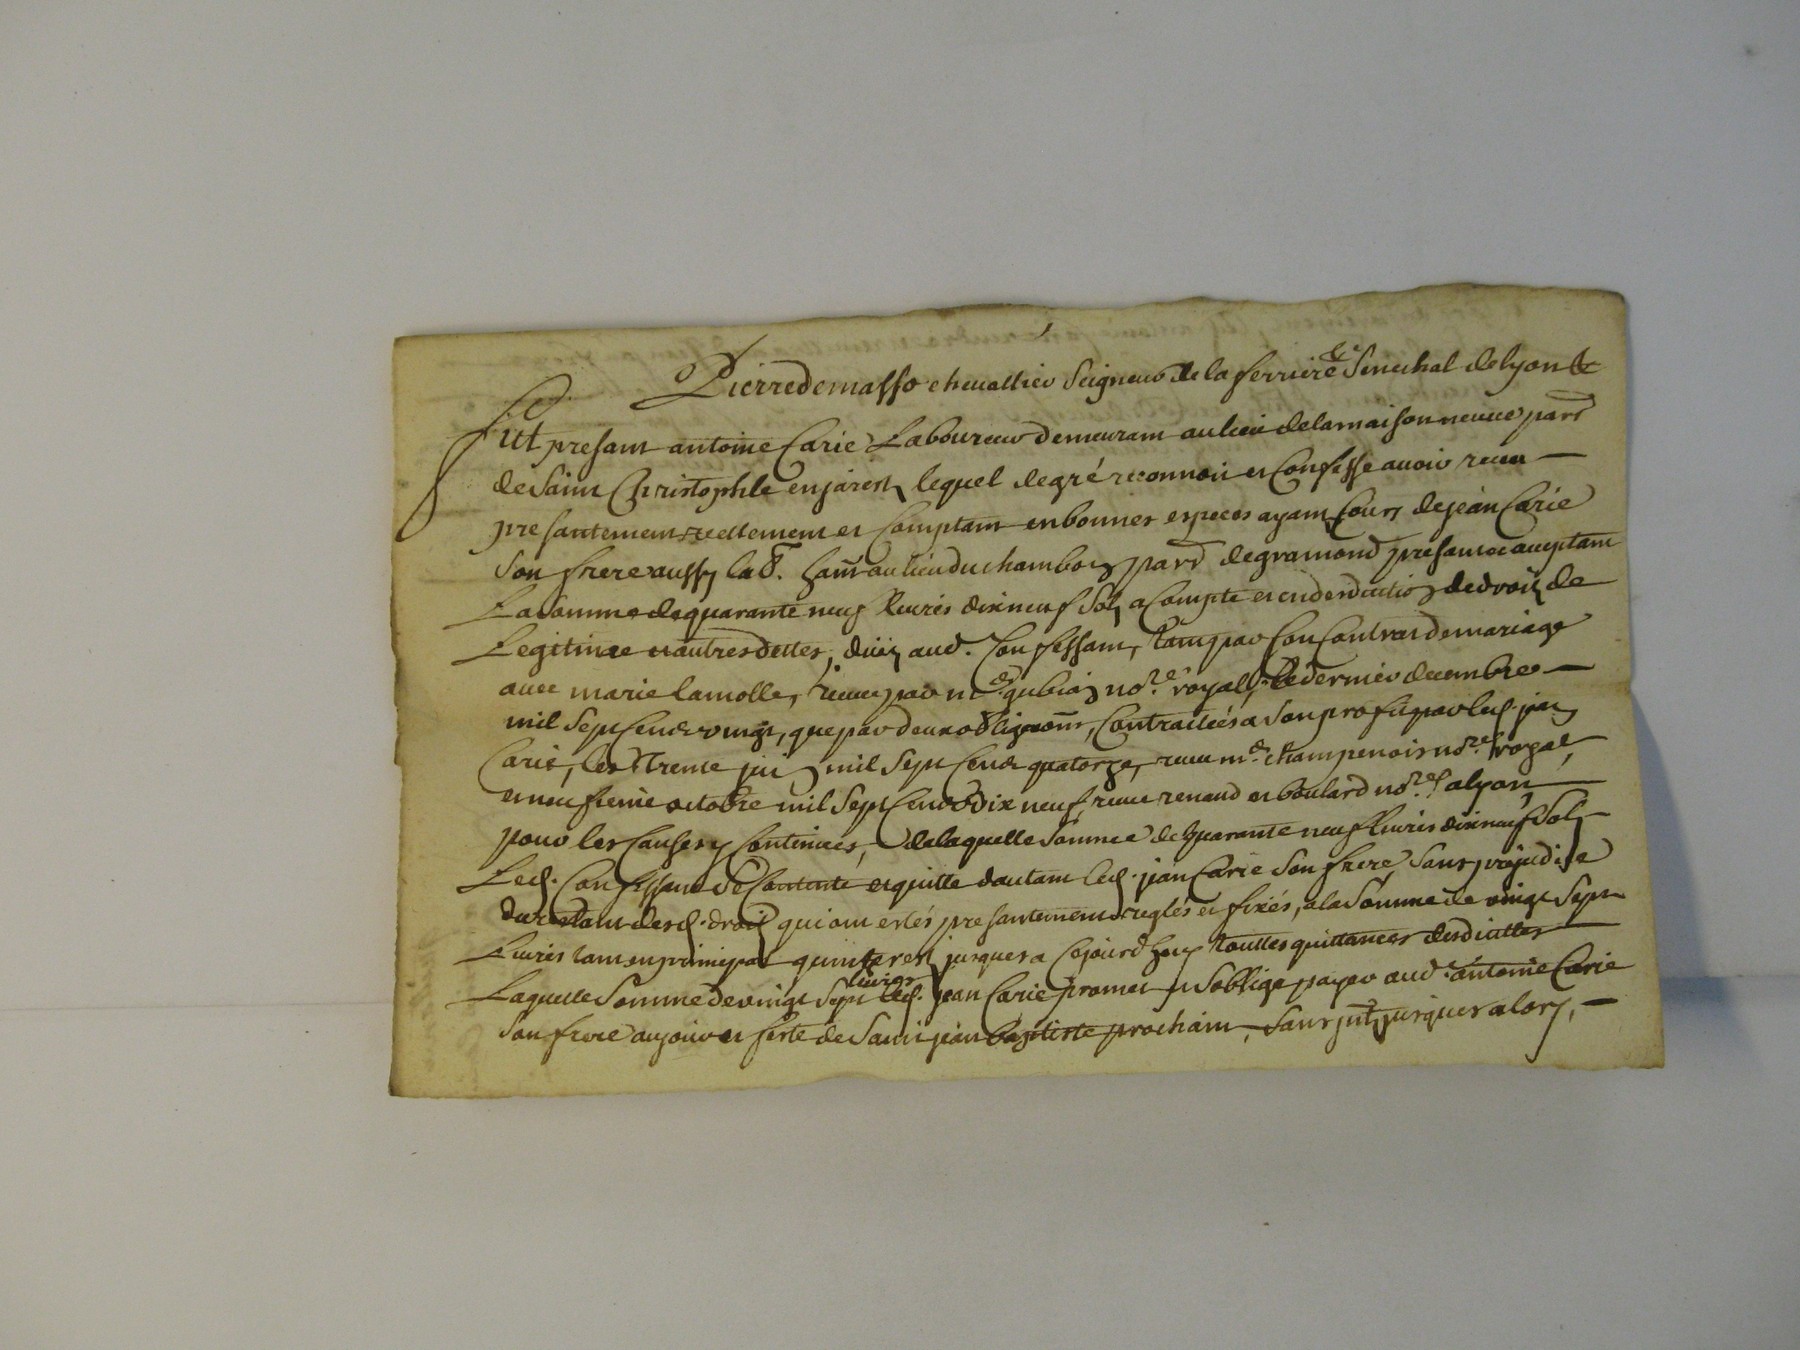 Pierre de masso chevallier Seigneur de la ferriere &c Senechal de lyon &c
fut presant antoine Carie Laboureur demeurant au lieu de la maison neuve parr
de Saint Christophle en jarest, lequel de gré reconnoit et Confesse avoir receu
presantement reellement et Comptant en bonnes especes ayant Cours de jean Carie
Son frere aussy lab. hant au lieu du chambon parr de gramond presant et aceptant
La Somme de quarante neuf livres dix neuf Solz a Compte et en deduction de droitz de
Legitime et autres dettes, deüs aud. Confessant, tant par Son Contrat de mariage
avec marie lamolle, receu par me gubian nore royal, le dernier decembre
mil Sept Cend vingt, que par deux obligaons, Contractées a Son profit par led. jean
Carie, les trente juin mil Sept Cend quatorze, receu me champenois nore royal,
et neufieme octobre mil Sept Cend dix neuf, receu renaud et boulard nores a lyon
pour les Causes y Contenues, de laquelle Somme de quarante neuf livres dix neuf Solz
Led. Confessant Se Contente et quitte d'autant led. jean Carie Son frere, Sans prejudice
du restant desd. droitz qui ont estés presantement reglés et fixés, a la Somme de vingt Sept
Livres tant en principal qu'interest jusques a Cejourd'huy touttes quittances desduittes
Laquelle Somme de vingt Sept livres led. jean Carie promet et S'oblige payer aud. antoine Carie
Son frere au jour et feste de Saint jean baptiste prochain, Sans jnt jusques alors,